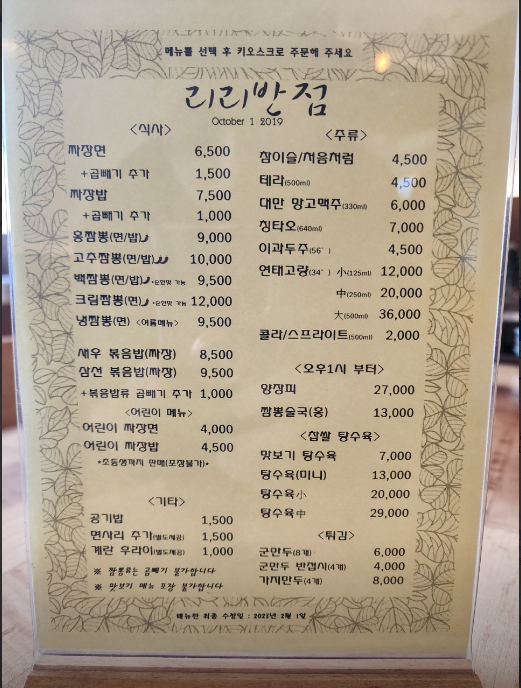 메뉴를 선택 후 키오스크로 주문해 주세요
리리반점
October 1 2019
<식사>
짜장면 6,500
+곱빼기 추가 1,500
짜장밥 7,500
+곱빼기 추가 1,000
홍짬뽕(면/밥) 9,000
고추짬뽕(면/밥) 10,000
백짬뽕(면/밥) 9,500
크림짬뽕(면) 12,000
냉짬뽕(면) <여름메뉴> 9,500
새우 볶음밥(짜장) 8,500
삼선 볶음밥(짜장) 9,500
+볶음밥류 곱빼기 추가 1,000
<어린이 메뉴>
어린이 짜장면 4,000
어린이 짜장밥 4,500
*초등생까지 판매(포장불가)*
<기타>
공기밥 1,500
면사리 추가(별도제공) 1,500
계란 후라이(별도제공) 1,000
※ 짬뽕류는 곱빼기 불가합니다
※ 맛보기 메뉴 포장 불가합니다
<주류>
참이슬/처음처럼 4,500
테라(500ml) 4,500
대만 망고맥주(330ml) 6,000
칭타오(640ml) 7,000
이과두주(56˚) 4,500
연태고량(34˚) 小(125ml) 12,000
中(250ml) 20,000
大(500ml) 36,000
콜라/스프라이트(500ml) 2,000
<오후1시 부터>
양장피 27,000
짬뽕술국(홍) 13,000
<찹쌀 탕수육>
맛보기 탕수육 7,000
탕수육(미니) 13,000
탕수육小 20,000
탕수육中 29,000
<튀김>
군만두(8개) 6,000
군만두 반접시(4개) 4,000
가지만두(4개) 8,000
메뉴판 최종 수정일 : 2023년 2월 1일